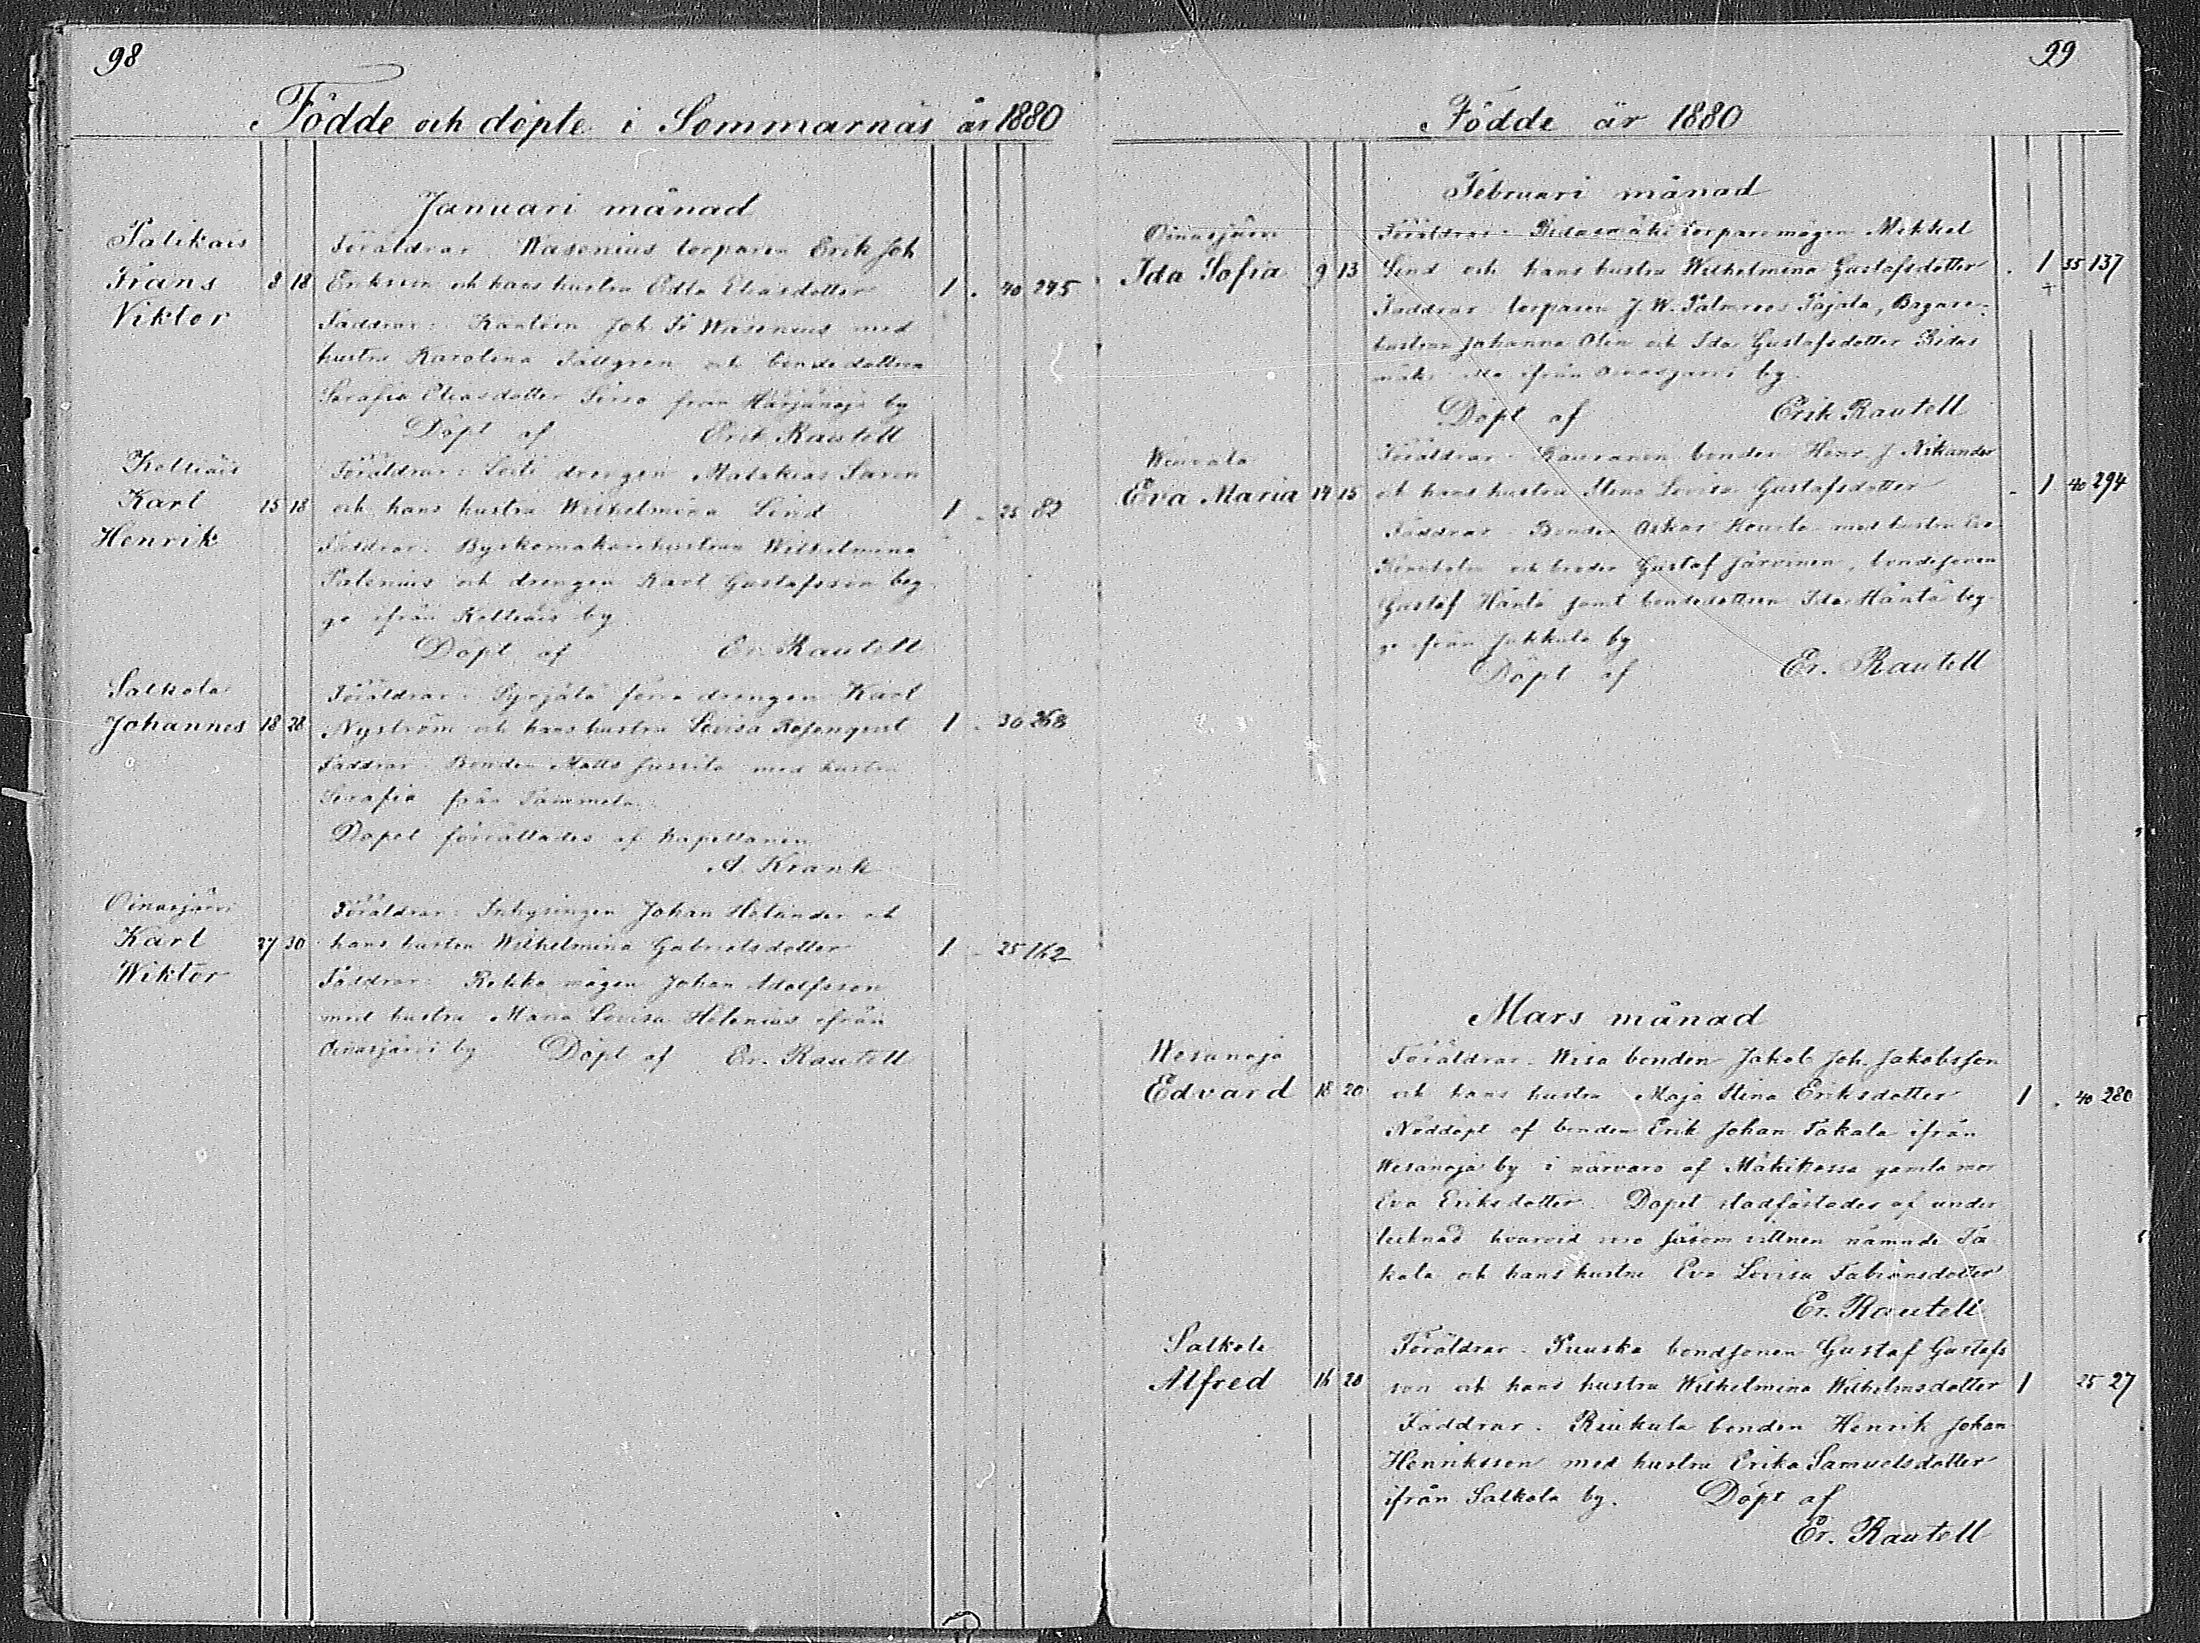 98
Födde och döpte i Sommarnäs år 1880
Januari månad
Palikais
Frans 8 18
Viktor
Föräldrar Wasenius torparen Erik Joh
Eriksson och hans hustru Edla Eliasdotter 1 . 40 245
Faddrar: Kantorn Joh. Fr Wasenius med
hustru Karolina Tallgren och bondedottren
Serafia Eliasdotter Sirro från Harjånoja by
Döpt af Erik Rautell
Koltiais
Karl 15 18
Henrik
Föräldrar: drengen Malakias Saren
och hans hustru Wilhelmina Lind 1 . 25 82
Faddrar. Byskomakarehustrun Wilhelmina
Palenius och drengen Karl Gustafsson beg
ge ifrån Koltiais by
Döpt af Er. Rautell
Salkola
Johannes 18 28
Föräldrar: Syrjälä förra drengen Karl
Nyström och hans hustru Lovisa Rosenqvist 1 . 30 268
Faddrar. Bonden Matts Jussila med hustru
Serafia från Tammela.
Dopet förrättades af kapellanen
A. Krank
Oinasjärvi
Karl 27 30
Wiktor
Föräldrar: Inhysingen Johan Helander och
hans hustru Wilhelmina Gabrielsdotter 1 . 25 162
Faddrar: Rekko mågen Johan Adolfsson
med hustru Maria Lovisa Helenius ifrån
Oinasjärvi by Döpt af Er. Rautell
99
Födde år 1880
Februari månad
Oinasjärvi
Ida Sofia 9 13
Föräldrar. torparemågen Mikkel
Lind och hans hustru Wilhelmina Gustafsdotter . 1 35 137
Faddrar torparen J. W. Palmroos Pajala, Bagare-
hustrun Johanna Olin och Ida Gustafsdotter
ifrån Oinasjärvi by.
Döpt af Erik Rautell
Eva Maria 14 15
Föräldrar. Rauranen bonden Henr. J. Nikander
och hans hustru Stina Lovisa Gustafsdotter . 1 40 294
Faddrar. Bonden Oskar med hustru Eva
och bonden Gustaf Järvinen, bondesonen
Gustaf Häntä samt bondedottren Ida Häntä beg-
ge ifrån Jakkula by
Döpt af Er. Rautell
Mars månad
Wesanoja
Edvard 18 20
Föräldrar. Wisa bonden Jakob Joh. Jakobsson
och hans hustru Maja Stina Eriksdotter 1 . 40 280
Nöddöpt af bonden Erik Johan Takala ifrån
Wesanoja by i närvaro af gamla mor
Eva Eriksdotter. Dopet stadfästades af under
tecknad hvarvid voro såsom vittnen nämnde Ta
kala och hans hustru Eva Lovisa Fabiansdotter
Er. Rautell
Salkola
Alfred 16 20
Föräldrar. Puuska bondsonen Gustaf Gustafs
son och hans hustru Wilhelmina Wilhelmsdotter 1 25 27
Faddrar. Riukula bonden Henrik Johan
Henriksson med hustru Erika Samuelsdotter
ifrån Salkola by. Döpt af
Er. Rautell